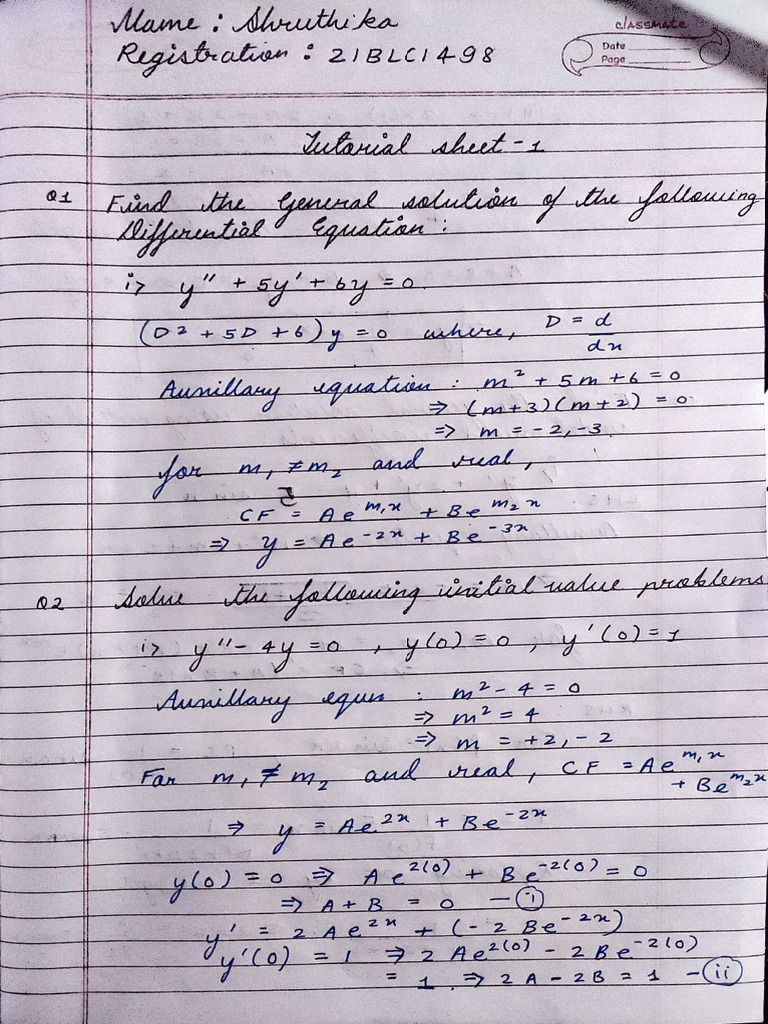 Name : Shruthika
Registration : 21BLC1498
classmate
Date
Page
Tutorial sheet - 1
Q1 Find the General solution of the following
Differential Equation :
i> y'' + 5y' + 6y = 0
(D² + 5D + 6) y = 0 where, D = d/dx
Auxillary equation : m² + 5m + 6 = 0
⇒ (m+3)(m+2) = 0
⇒ m = -2, -3
for m₁ ≠ m₂ and real,
CF = Ae^m₁x + Be^m₂x
⇒ y = Ae^-2x + Be^-3x
Q2 Solve the following initial value problems
i> y'' - 4y = 0 , y(0) = 0 , y'(0) = 1
Auxillary equn : m² - 4 = 0
⇒ m² = 4
⇒ m = +2, -2
For m₁ ≠ m₂ and real, CF = Ae^m₁x
+ Be^m₂x
⇒ y = Ae^2x + Be^-2x
y(0) = 0 ⇒ Ae^2(0) + Be^-2(0) = 0
⇒ A + B = 0 — (i)
y' = 2Ae^2x + (-2Be^-2x)
y'(0) = 1 ⇒ 2Ae^2(0) - 2Be^-2(0)
= 1 ⇒ 2A - 2B = 1 — (ii)